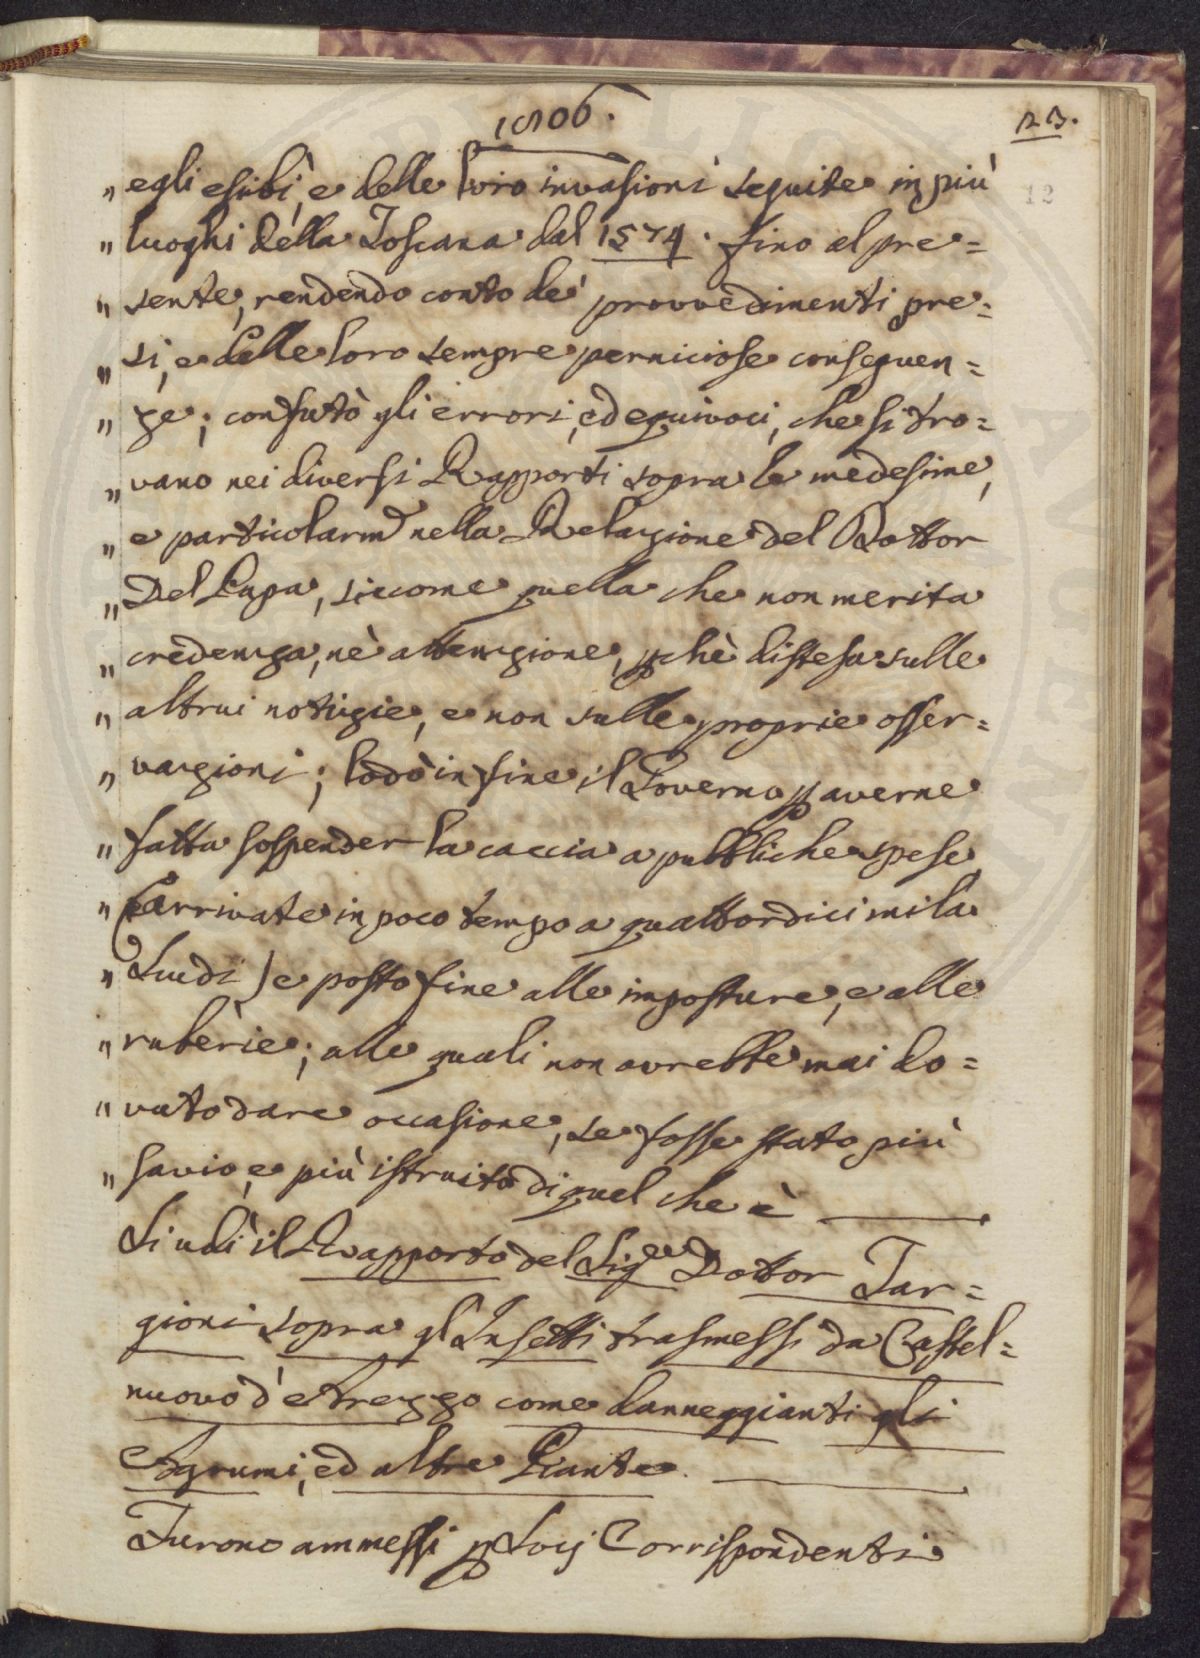 1806.
23.
12
„ egli esibì, e delle loro invasioni seguite in più
„ luoghi della Toscana dal 1574. fino al pre=
„ sente, rendendo conto de' provvedimenti pre=
„ si, e delle loro sempre perniciose conseguen=
„ ze; confutò gli errori, ed equivoci, che si tro=
„ vano nei diversi Rapporti sopra le medesime,
„ e particolarm.e nella Relazione del Dottor
„ Del Papa, siccome quella che non merita
„ credenza, nè attenzione, p chè distesa sulle
„ altrui notizie, e non sulle proprie osser=
„ vazioni; lodò in fine il Governo p averne
„ fatta sospender la caccia a pubbliche spese
„ (arrivate in poco tempo a quattordici mila
„ Scudi) e posto fine alle imposture, e alle
„ ruberie; alle quali non avrebbe mai do=
„ vuto dare occasione, se fosse stato più
„ savio, e più istruito di quel che è
Si udì il Rapporto del Sig.re Dottor Tar=
gioni sopra gl'Insetti trasmessi da Castel=
nuovo d'Abrezzo come danneggianti gli
Agrumi, ed altre Piante.
Furono ammessi p Socj Corrispondenti